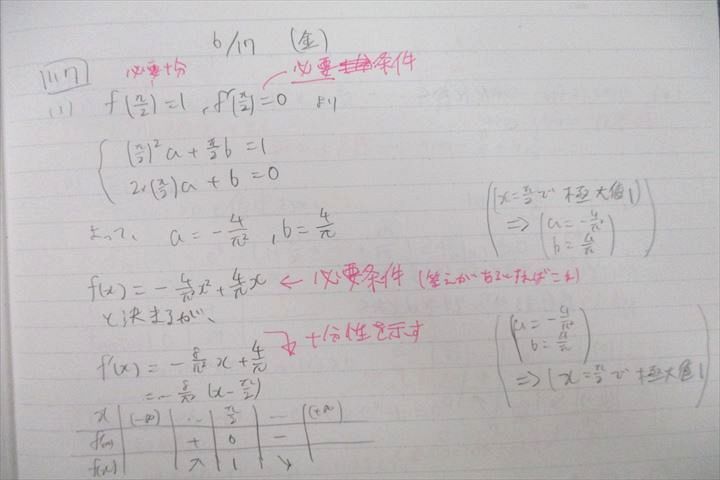 6/17 (金)
必要十分 必要条件
(1) f(π/2)=1, f'(π/2)=0 より
(π/2)²a + π/2 b = 1
2×(π/2)a + b = 0
よって、 a = -4/π², b = 4/π
(x=π/2で極大値1)
⇒ (a = -4/π², b = 4/π)
f(x) = -4/π² x² + 4/π x ← 必要条件 (答えがあるとすればこれ)
と決まるが、
↓ 十分性を示す
f'(x) = -8/π² x + 4/π
= -8/π² (x - π/2)
(a = -4/π², b = 4/π)
⇒ (x=π/2で極大値1)
x (-∞) … π/2 … (+∞)
f'(x) + 0 -
f(x) ↗ 1 ↘